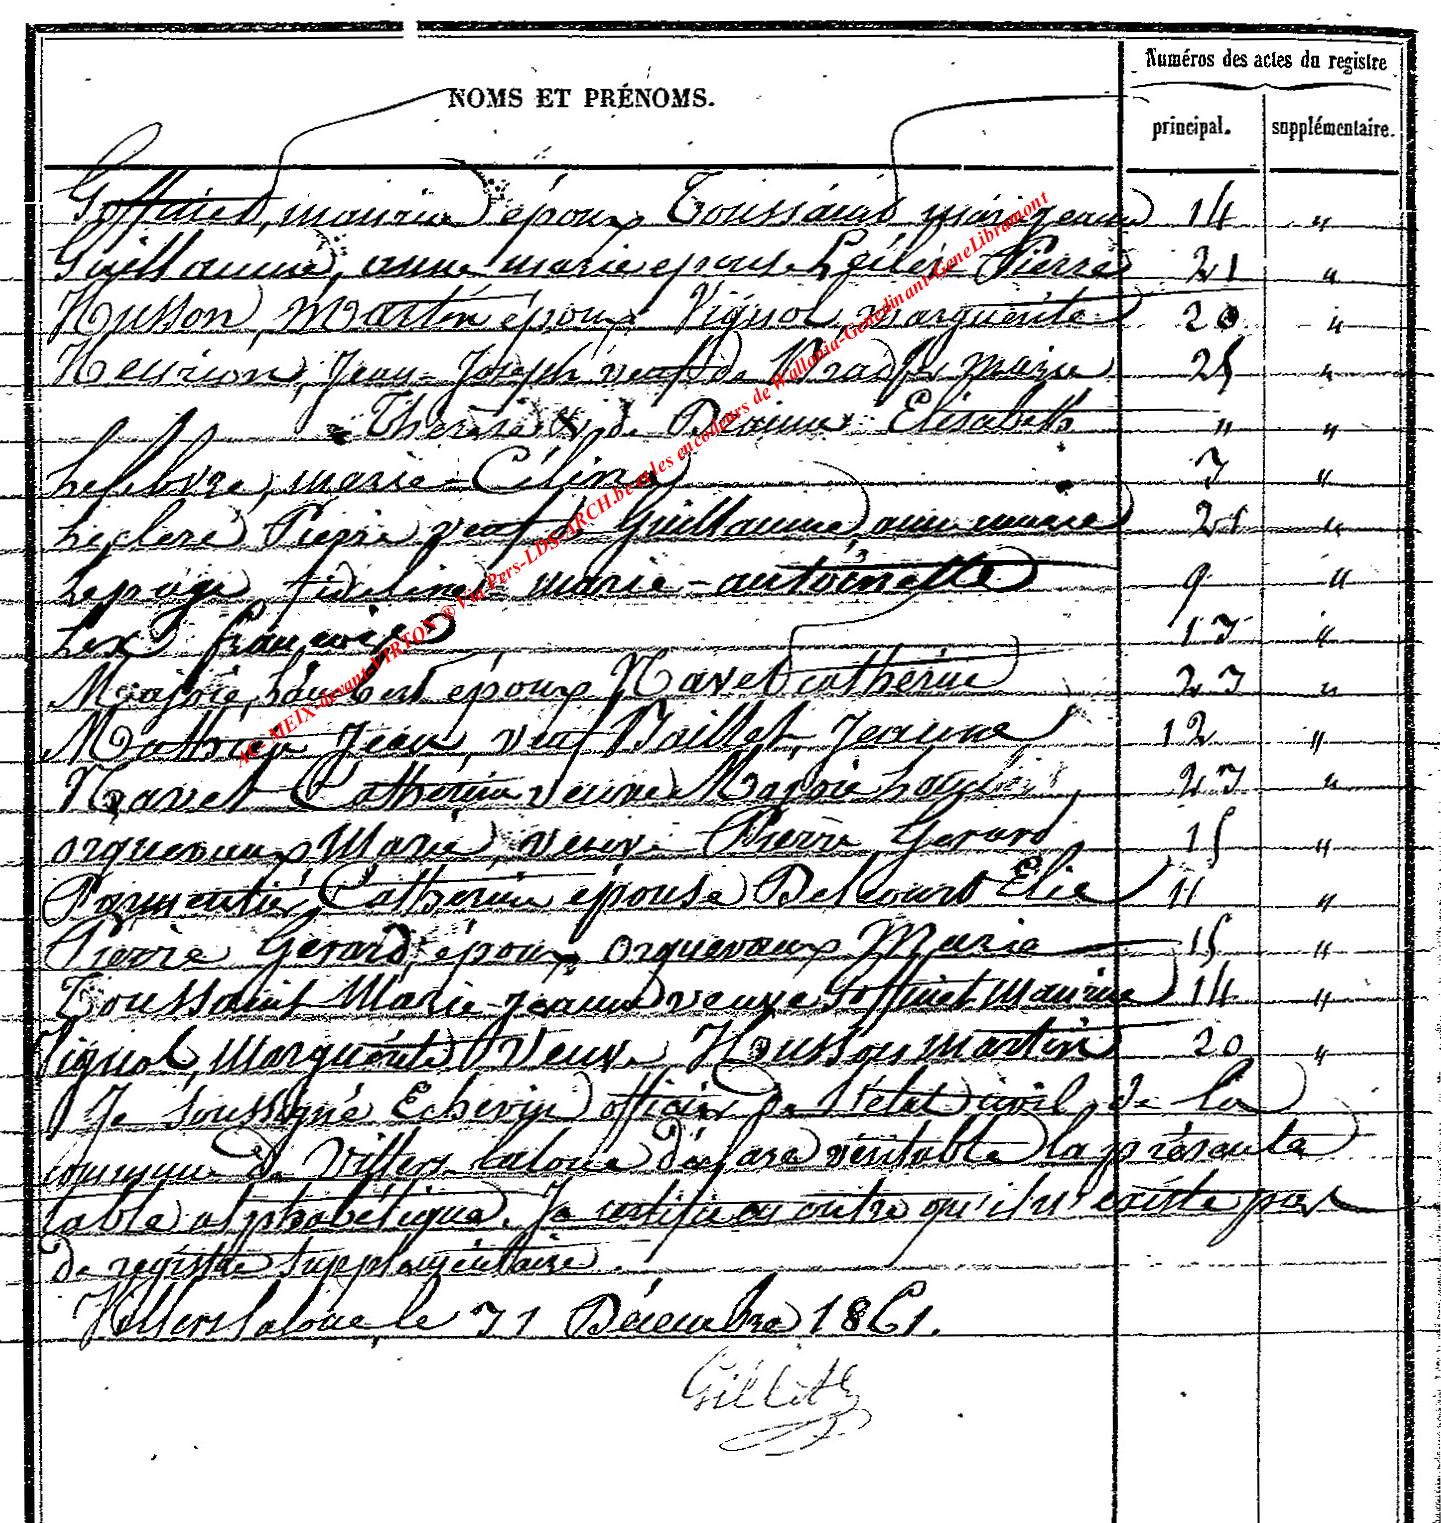 Numéros des actes du registre
NOMS ET PRÉNOMS.
principal. supplémentaire.
Goffinet, maurice époux Toussaint marie jeanne 14 "
Guillaume, anne marie epouse Leclère Pierre 21 "
Husson, Martin époux Vignol, marguerite 20 "
Henrion, Jean-Joseph veuf de marie 25 "
Thérèse & de Elisabeth " "
Lefebvre, marie-Célina 7 "
Leclere Pierre veuf de Guillaume, anne marie 21 "
Lepage fideline marie-antoinette 9 "
Lex françois 17 "
Majoie, haubert époux Navet catherine 23 "
Mathieu Jean, veuf Baillet, Jeanne 12 "
Navet Catherine veuve Majoie haubert 23 "
orquevaux Marie veuve Pierre Gerard 15 "
Parmentier, Catherine épouse Delcourt Elie 11 "
Pierre Gerard, époux orquevaux Marie 15 "
Toussaint Marie-jeanne veuve Goffinet Maurice 14 "
Vignol, marguerite veuve Husson martin 20 "
Je soussigné Echevin officier de l'état civil de la
commune de Villers-laloue déclare véritable la présente
table alphabétique. Je certifie en outre qu'il n'existe pas
de registre supplémentaire.
Villers laloue, le 31 Décembre 1861.
AC MEIX-devant-VIRTON ® Via Pers-LDS-ARCH.be et les encodeurs de Wallonia-Genedinant-GeneLibramont